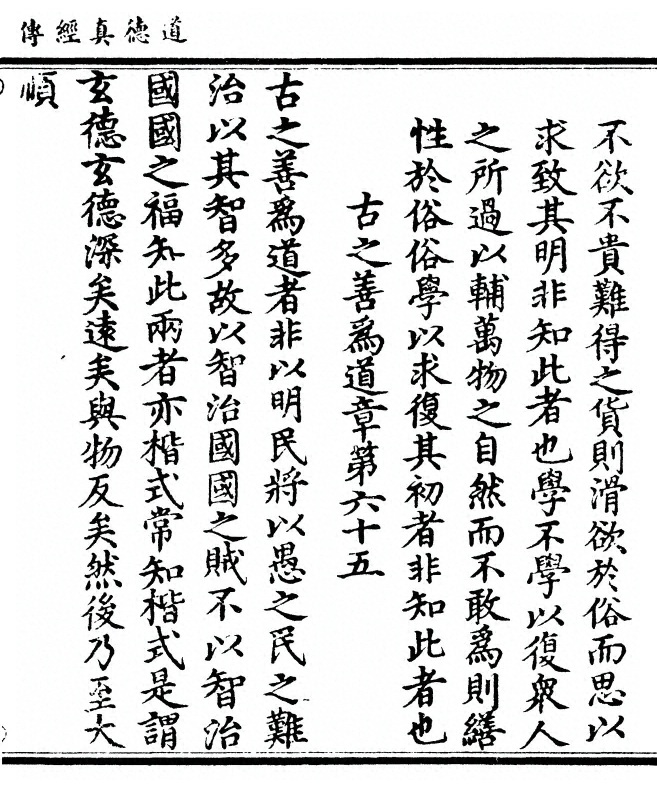 道德真經傳
不欲不貴難得之貨則滑欲於俗而思以
求致其明非知此者也學不學以復衆人
之所過以輔萬物之自然而不敢爲則繕
性於俗俗學以求復其初者非知此者也
古之善爲道章第六十五
古之善爲道者非以明民將以愚之民之難
治以其智多故以智治國國之賊不以智治
國國之福知此兩者亦楷式常知楷式是謂
玄德玄德深矣遠矣與物反矣然後乃至大
順